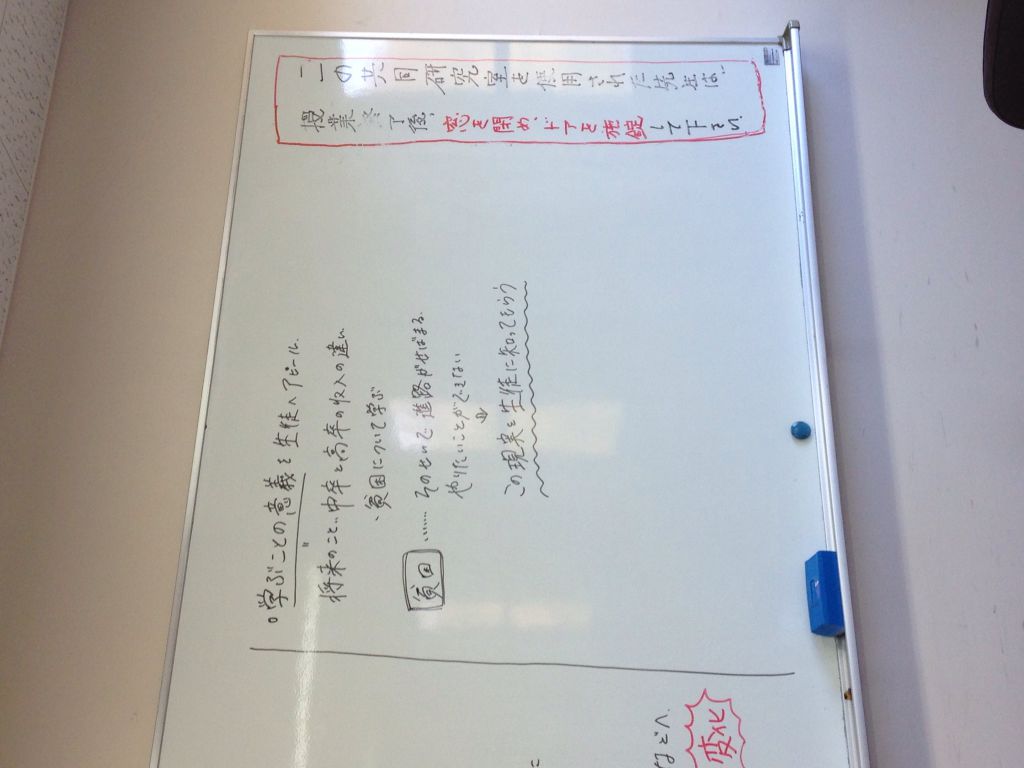 この共同研究室を使用された先生は、
授業終了後、窓を閉め、ドアを施錠して下さい。
○学ぶことの意義を生徒へアピール。
〃
将来のこと…中卒と高卒の収入の違い
・貧困について学ぶ
貧困 ……そのせいで進路がせばまる。
やりたいことができない
⇓
この現実を生徒に知ってもらう
に
などへ。
変化